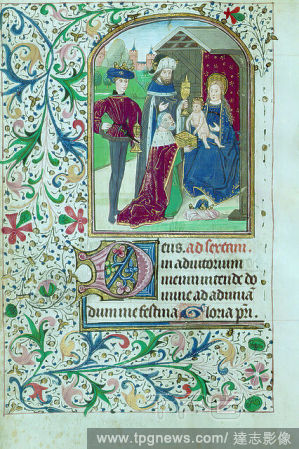 Deus. ad sextam
in adiutorium
meum intende do
mine ad adiuva
dum me festina Gloria pri
www.tpgnews.com/達志影像